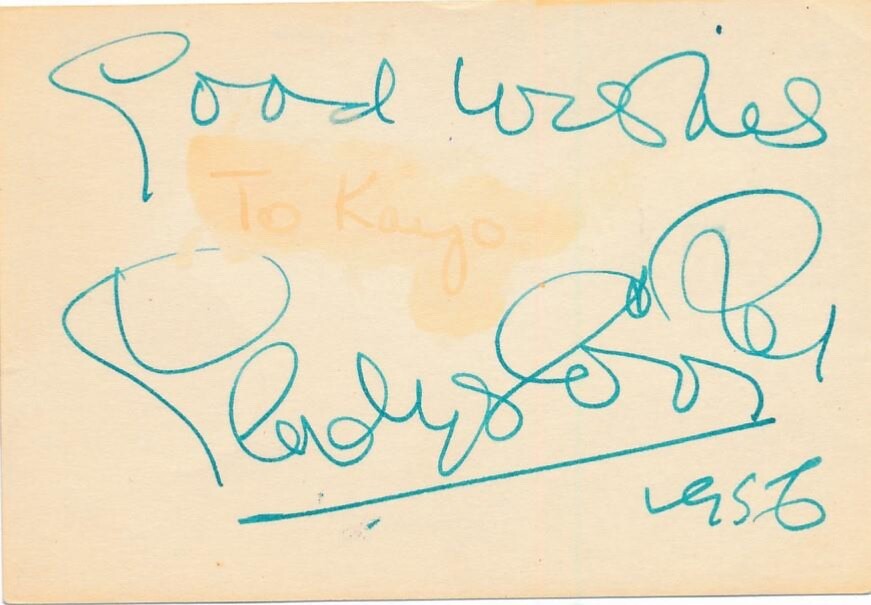 Good Wishes
To Kayo
Gladys Cooper
1956